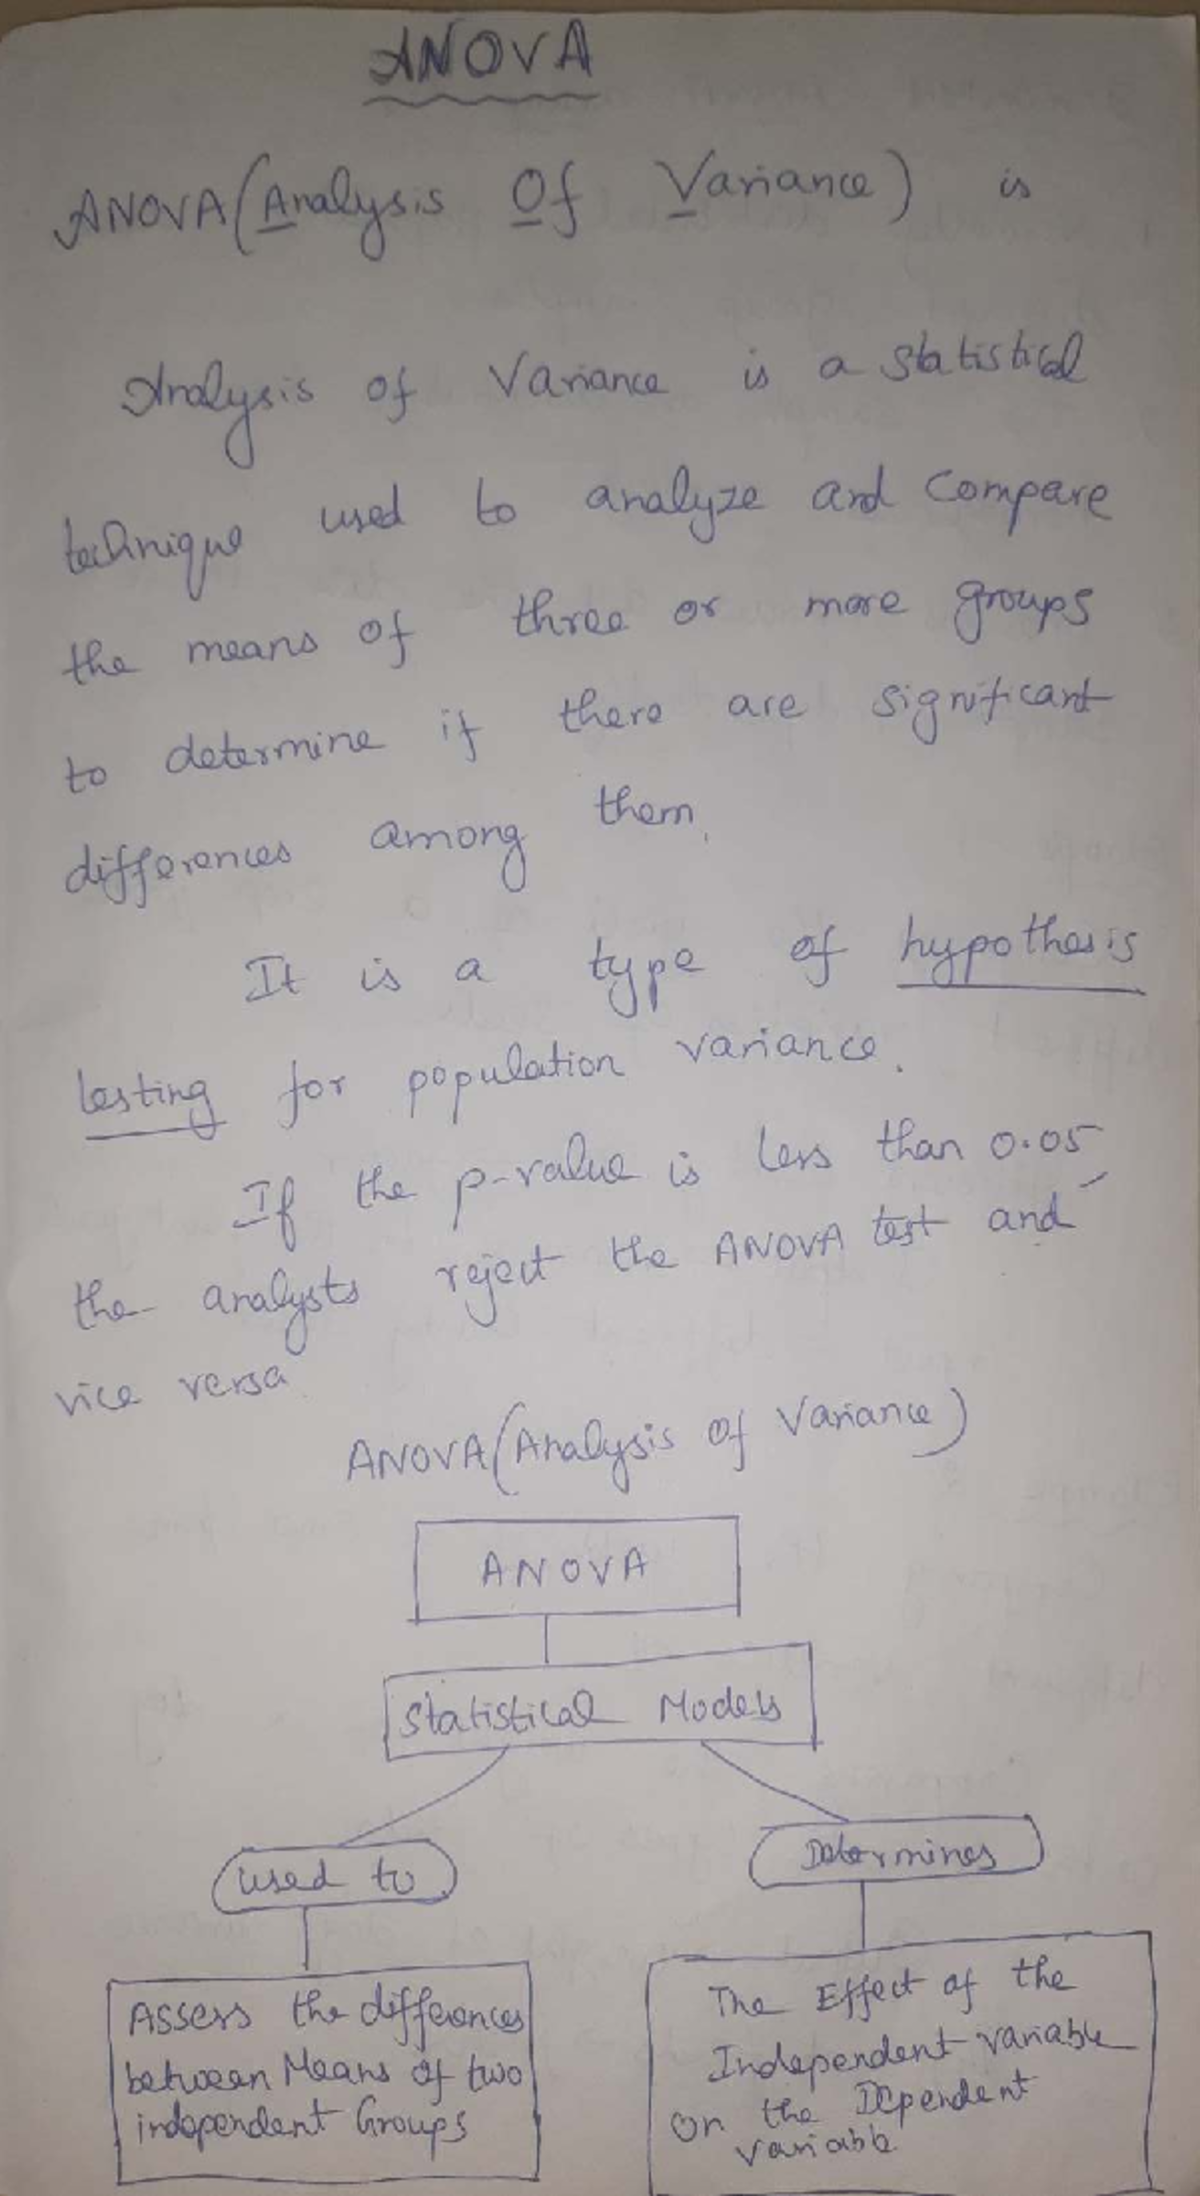 ANOVA
ANOVA (Analysis Of Variance) is
Analysis of Variance is a statistical
technique used to analyze and compare
the means of three or more groups
to determine if there are significant
differences among them.
It is a type of hypothesis
testing for population variance.
If the p-value is less than 0.05,
the analysts reject the ANOVA test and
vice versa
ANOVA (Analysis of Variance)
ANOVA
Statistical Models
used to
Determines
Assess the differences
between Means of two
independent Groups
The Effect of the
Independent variable
on the Dependent
variable